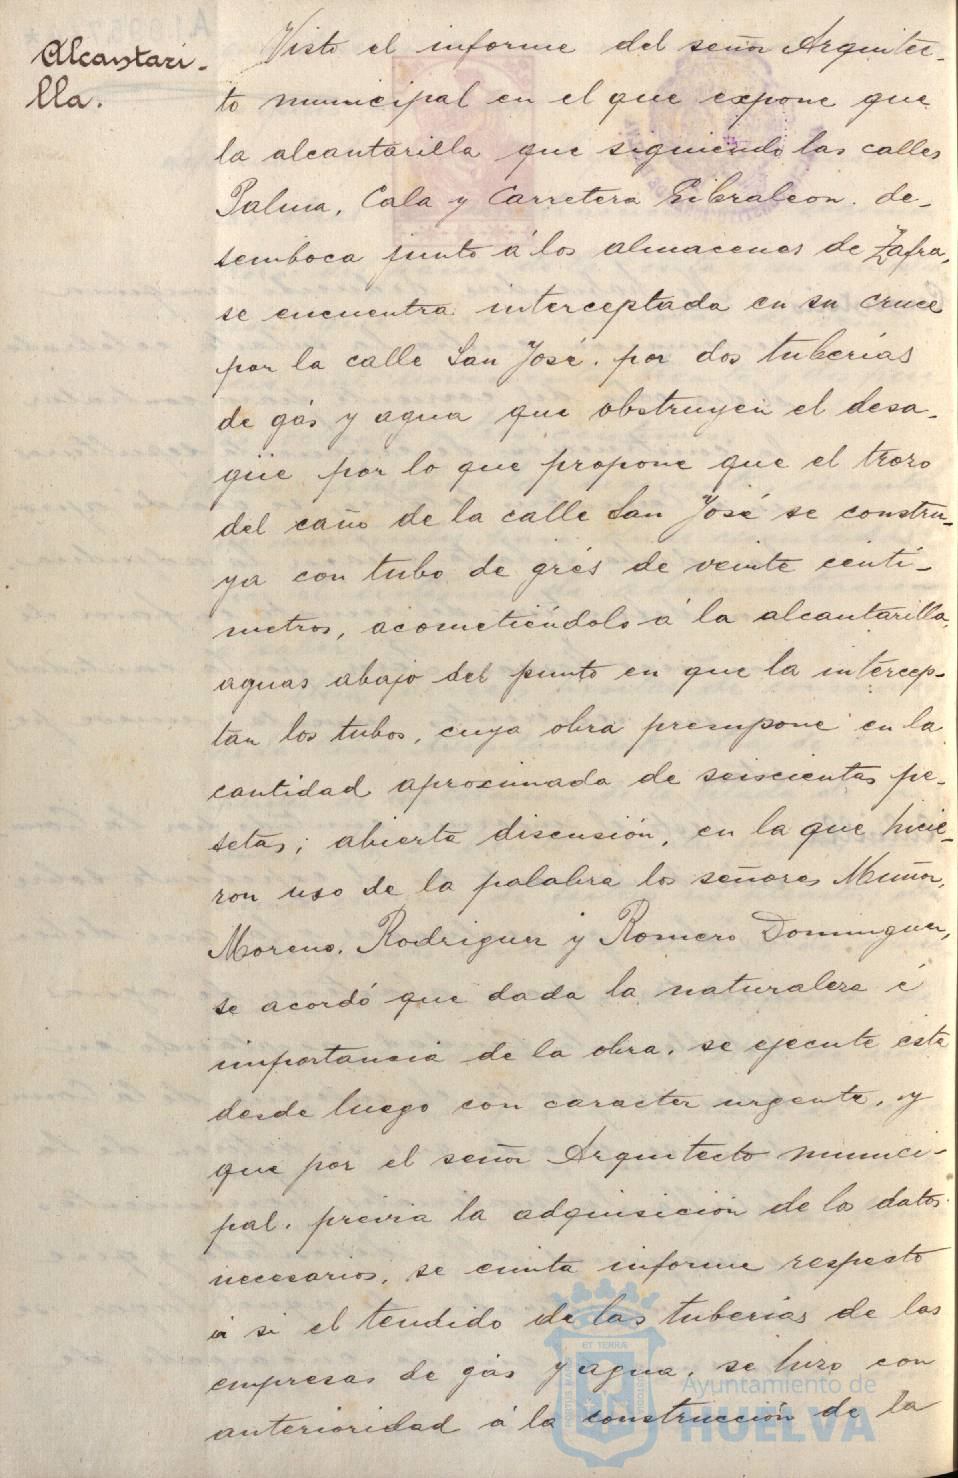 Alcantari-
lla.
Visto el informe del señor Arquitec-
to municipal en el que expone que
la alcantarilla que siguiendo las calles
Palma, Cala y Carretera Gibraleon. de-
semboca junto á los almacenes de Zafra,
se encuentra interceptada en su cruce
por la calle San José. por dos tuberías
de gás y agua que obstruyen el desa-
güe por lo que propone que el trozo
del caño de la calle San José se constru-
ya con tubo de grés de veinte centí-
metros, acometiéndolo á la alcantarilla,
aguas abajo del punto en que la intercep-
tan los tubos, cuya obra presupone en la
cantidad aproximada de seiscientas pe-
setas; abierta discusión, en la que hicie-
ron uso de la palabra los señores Muñoz,
Moreno, Rodriguez y Romero Dominguez,
se acordó que dada la naturaleza é
importancia de la obra, se ejecute ésta
desde luego con caracter urgente, y
que por el señor Arquitecto munici-
pal, previa la adquisición de los datos
necesarios, se emita informe respecto
á si el tendido de las tuberías de las
empresas de gás y agua, se hizo con
anterioridad á la construcción de la
ET TERRÆ
Ayuntamiento de
HUELVA